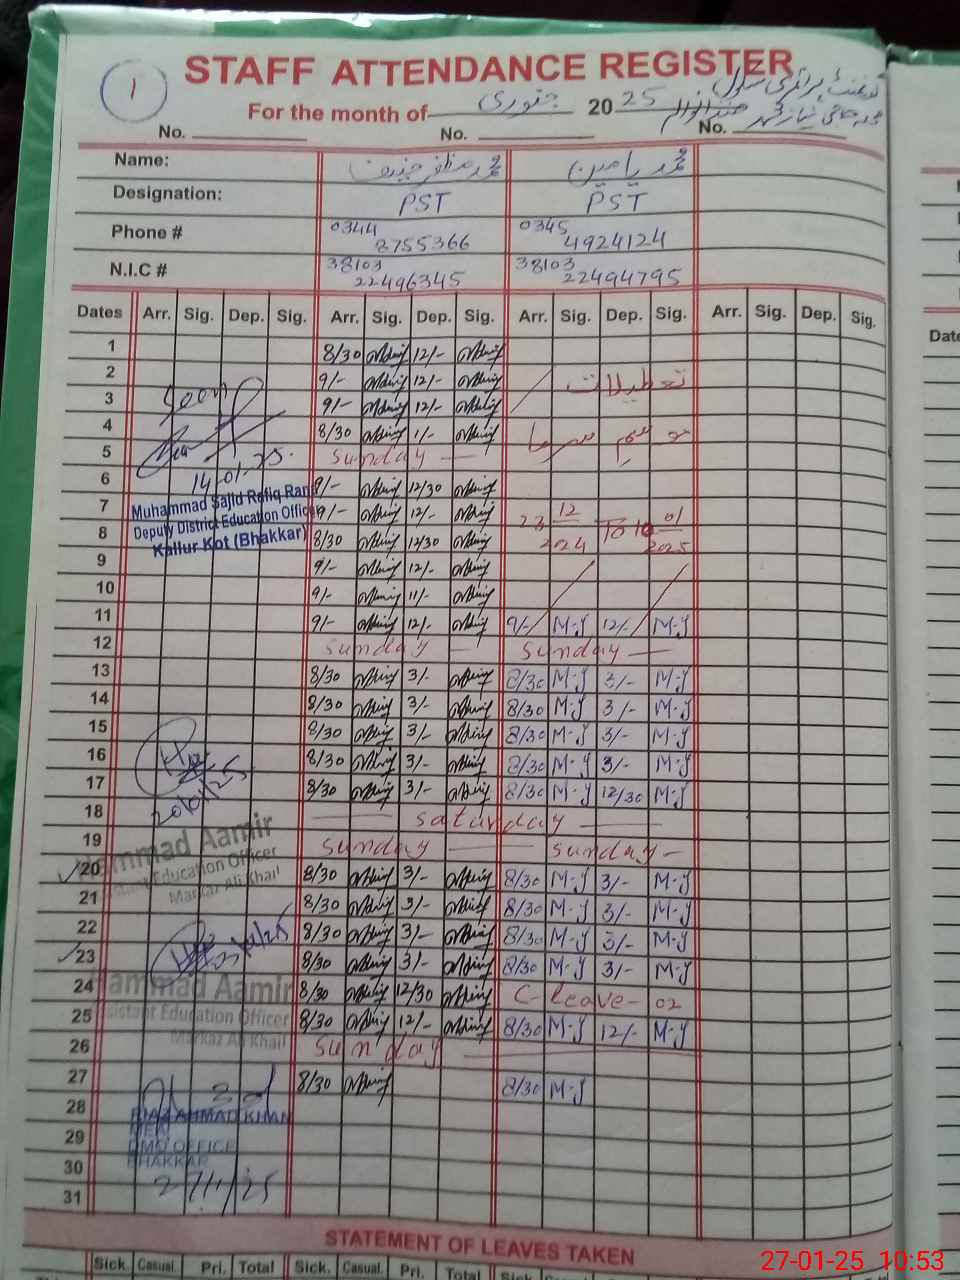 1
STAFF ATTENDANCE REGISTER
For the month of جنوری 2025
گورنمنٹ پرائمری سکول
No. No. No.
Name: محمد مظفر حنیف محمد یامین
Designation: PST PST
Phone # 0344 8755366 0345 4924124
N.I.C # 38103 22496345 38103 22494795
Dates Arr. Sig. Dep. Sig. Arr. Sig. Dep. Sig. Arr. Sig. Dep. Sig. Arr. Sig. Dep. Sig.
1 8/30 12/-
2 9/- 12/- تعطیلات
3 9/- 12/-
4 8/30 1/- موسم سرما
5 Sunday
6 9/- 12/30
7 9/- 12/- 23 12 2024 To 10 01 2025
8 8/30 12/30
9 9/- 12/-
10 9/- 11/-
11 9/- 12/- 9/- M-J 12/- M-J
12 Sunday Sunday
13 8/30 3/- 8/30 M-J 3/- M-J
14 8/30 3/- 8/30 M-J 3/- M-J
15 8/30 3/- 8/30 M-J 3/- M-J
16 8/30 3/- 8/30 M-J 3/- M-J
17 8/30 3/- 8/30 M-J 12/30 M-J
18 Saturday
19 Sunday Sunday
20 8/30 3/- 8/30 M-J 3/- M-J
21 8/30 3/- 8/30 M-J 3/- M-J
22 8/30 3/- 8/30 M-J 3/- M-J
23 8/30 3/- 8/30 M-J 3/- M-J
24 8/30 12/30 C-leave-02
25 8/30 12/- 8/30 M-J 12/- M-J
26 Sunday
27 8/30 8/30 M-J
28
29
30
31
Seen
14-01-25
Muhammad Sajid Rafiq Rana
Deputy District Education Officer
Kallur Kot (Bhakkar)
20/01/25
ammad Aamir
istant Education Officer
Markaz Ali Khail
hammad Aamir
ssistant Education Officer
Markaz Ali Khail
RIAZ AHMAD KHAN
MEA
DMO OFFICE
BHAKKAR
27/1/25
STATEMENT OF LEAVES TAKEN
Sick. Casual. Pri. Total Sick. Casual. Pri. Total Sick. Casual. Pri. Total
Date
27-01-25 10:53